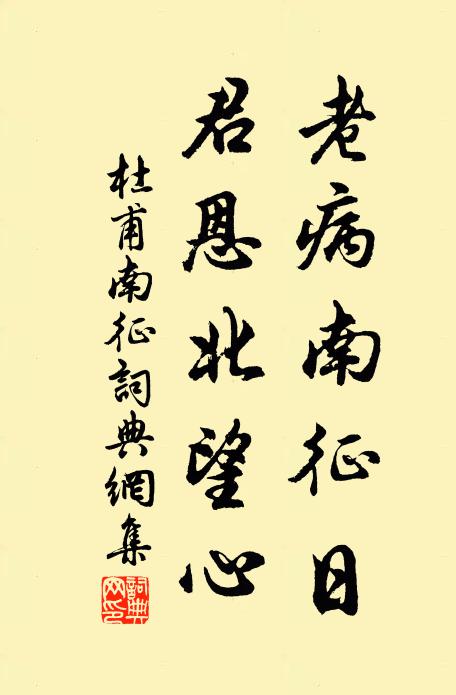 老病南征日
君恩北望心
杜甫南征詞典網集
詞典
网印